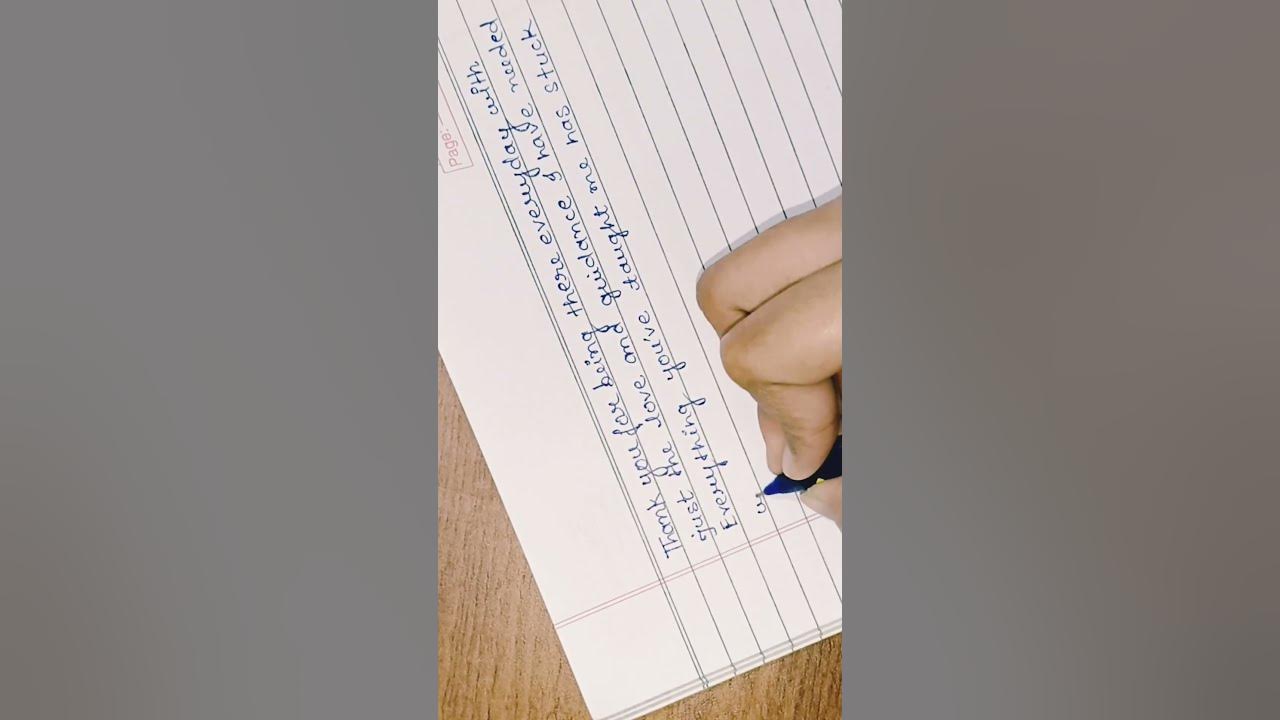 Page:
Thank you for being there everyday with
just the love and guidance I have needed
Everything you've taught me has stuck